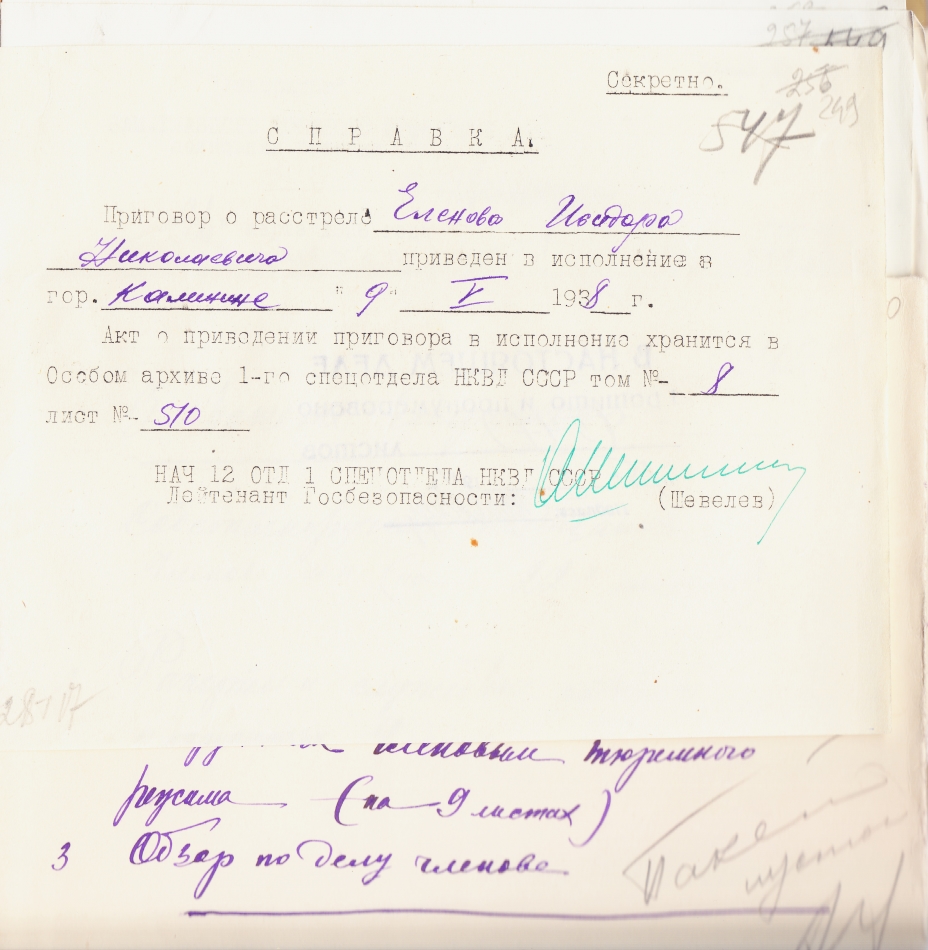 257 149
Секретно.
256
249
547
С П Р А В К А.
Приговор о расстреле Еленова Исидора
Николаевича приведен в исполнение в
гор. Калинине "9" V 1938 г.
Акт о приведении приговора в исполнение хранится в
Особом архиве 1-го спецотдела НКВД СССР том №- 8
лист №- 510
НАЧ 12 ОТД 1 СПЕЦОТДЕЛА НКВД СССР
Лейтенант Госбезопасности: (Шевелев)
28-17
тюремного
режима (на 9 листах)
3 Обзор по делу
Пакет
пустой